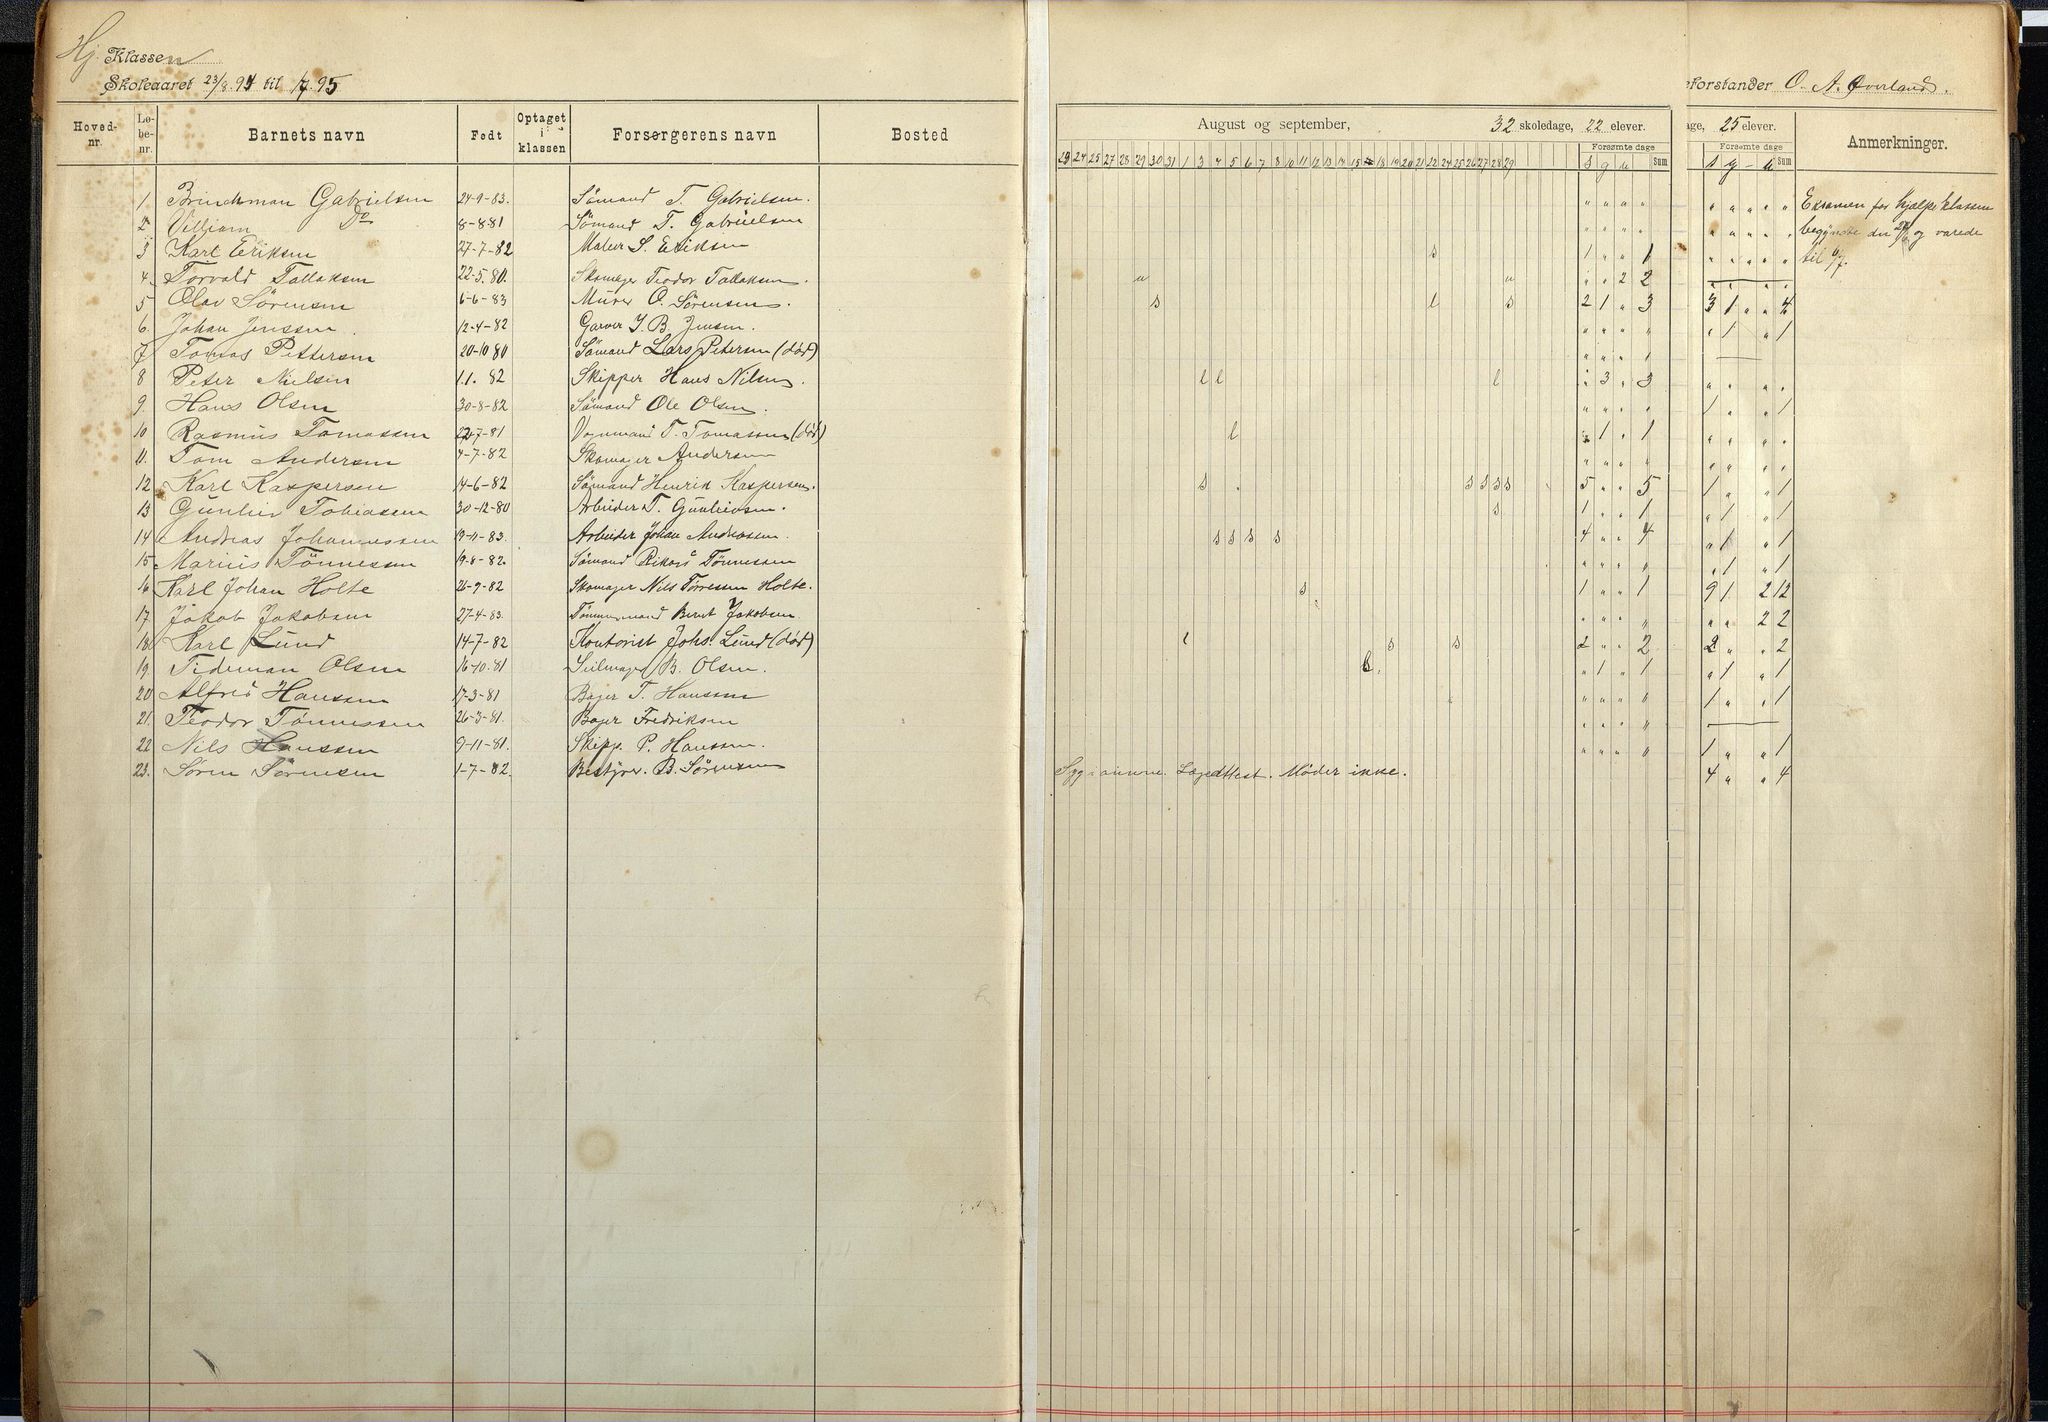 Hj. Klassen
Skoleaaret 23/8. 94 til /7 95
Hoved-nr. Lø-be-nr. Barnets navn Født Optaget i klassen Forsørgerens navn Bosted
1. Brinchman Gabrielsen 24-9-83. Sömand T. Gabrielsen.
2 Villiam Do 8-8-81 Sömand T. Gabrielsen
3 Karl Eriksen 27-7-82 Maler S. Eriksen
4. Torvald Tallaksen 22-5-80. Skomager Teodor Tallaksen.
5 Olav Sørensen 6-6-83 Murer O. Sørensen.
6. Johan Jenssen. 12-4-82 Garver J. B. Jensen.
7 Tomas Pettersen 20-10 80 Sömand Lars Petersen (død)
8 Peter Nielsen 1.1. 82 Skipper Hans Nilsen.
9. Hans Olsen 30-8-82 Sömand Ole Olsen.
10 Rasmus Tomassen 22-7-81 Vognmand T. Tomassen (død)
11. Tom Andersen 4-7-82 Skomager Andersen
12 Karl Kaspersen 14-6-82 Sömand Henrik Kaspersen.
13 Gunleiv Tobiassen 30-12-80 Arbeider T. Gunleivsen.
14 Andreas Johannessen 19-11-83. Arbeider Johan Andreassen.
15 Marius Tönnessen 19-8-82. Sömand Rikard Tönnessen
16 Karl Johan Holte 26-9-82 Skomager Nils Tørressen Holte.
17. Jakob Jakobsen 27-4-83. Tömmermand Bernt Jakobsen.
18. Karl Lund 14-7-82 Kontorist Johs. Lund (død)
19. Tideman Olsen 16-10.81 Seilmager B. Olsen.
20 Alfred Hanssen 17-3-81 Bager T. Hanssen
21. Teodor Tönnessen 26-3-81. Bager Fredriksen
22 Nils Hanssen 9-11-81. Skipp. P. Hanssen.
23. Sören Sörensen 1-7-82. Bestyrer. B. Sörensen
August og september, 32 skoledage, 22 elever.
Forsømte dage
23 24 25 27 28 29 30 31 1 3 4 5 6 7 8 10 11 12 13 14 15 18 19 20 21 22 24 25 26 27 28 29 s g u Sum
" " " "
" " " "
s 1 " " 1
u u " " 2 2
s l s 2 1 " 3
" " " "
" " " 1
l l l " 3 " 3
" " " "
l " 1 " 1
" " " "
s s s s s 5 " " 5
s 1 " " 1
s s s s 4 " " 4
" " " "
s 1 " " 1
" " " "
l s s 2 " " 2
" 1 " 1
" " " "
" " " "
" " " "
Lægeattest. Møder ikke.
eforstander O. A. Øverland.
age, 25 elever.
Forsømte dage Anmerkninger.
s g u Sum
" " " "
" " " "
" " " "
" " " "
3 1 " 4
" 1 " 1
" " " "
1 " " 1
" " " "
" " " "
1 " " 1
" 1 " 1
" 1 " 1
" 1 " 1
9 1 2 12
" " 2 2
2 " " 2
" 1 " 1
1 " " 1
1 " " 1
4 " " 4
Examen for hjælpeklassen
begyndte den og varede
til 6/7.